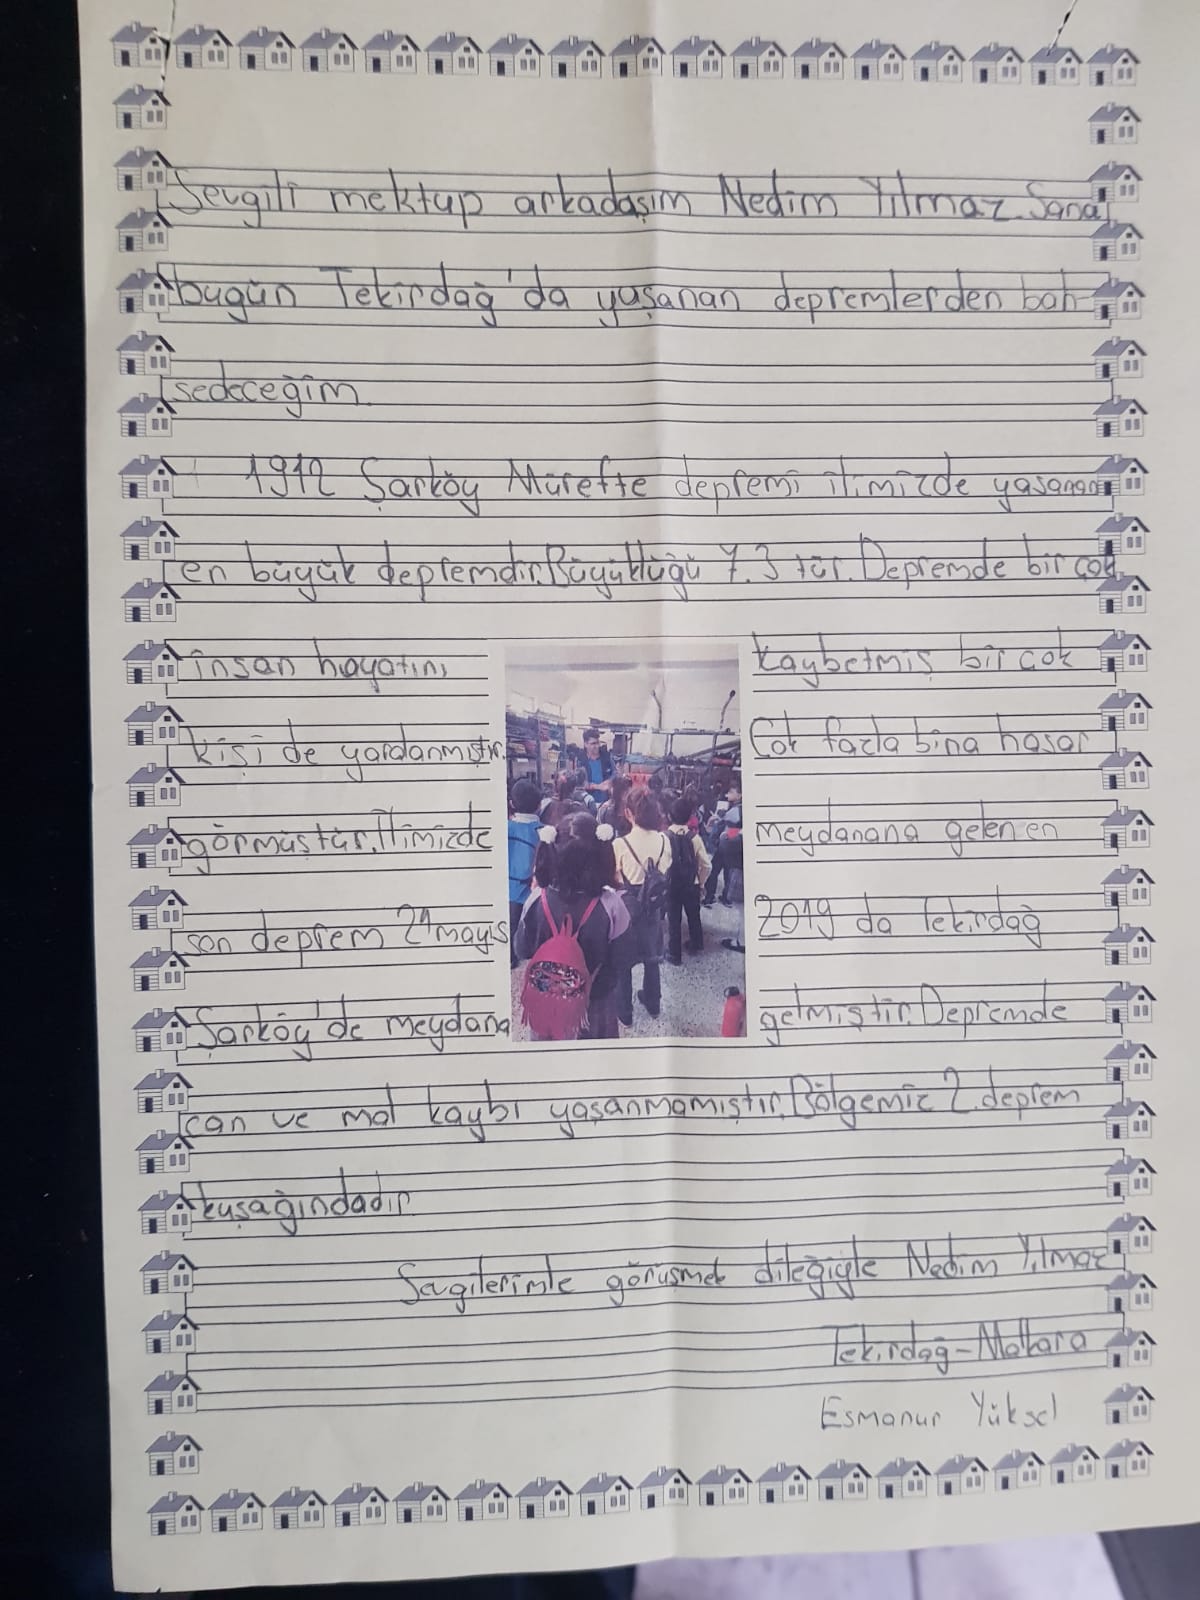 Sevgili mektup arkadaşım Nedim Yılmaz. Sana
bugün Tekirdağ'da yaşanan depremlerden bah
sedeceğim.
1912 Şarköy Mürefte depremi ilimizde yaşanan
en büyük depremdir. Büyüklüğü 7.3 tür. Depremde bir çok
insan hayatını kaybetmiş bir çok
kişi de yaralanmıştır. Çok fazla bina hasar
görmüştür. İlimizde meydanana gelen en
son deprem 21 mayıs 2019 da Tekirdağ
Şarköy'de meydana gelmiştir. Depremde
can ve mal kaybı yaşanmamıştır. Bölgemiz 2. deprem
kuşağındadır
Sevgilerimle görüşmek dileğiyle Nedim Yılmaz
Tekirdağ-Malkara
Esmanur Yüksel